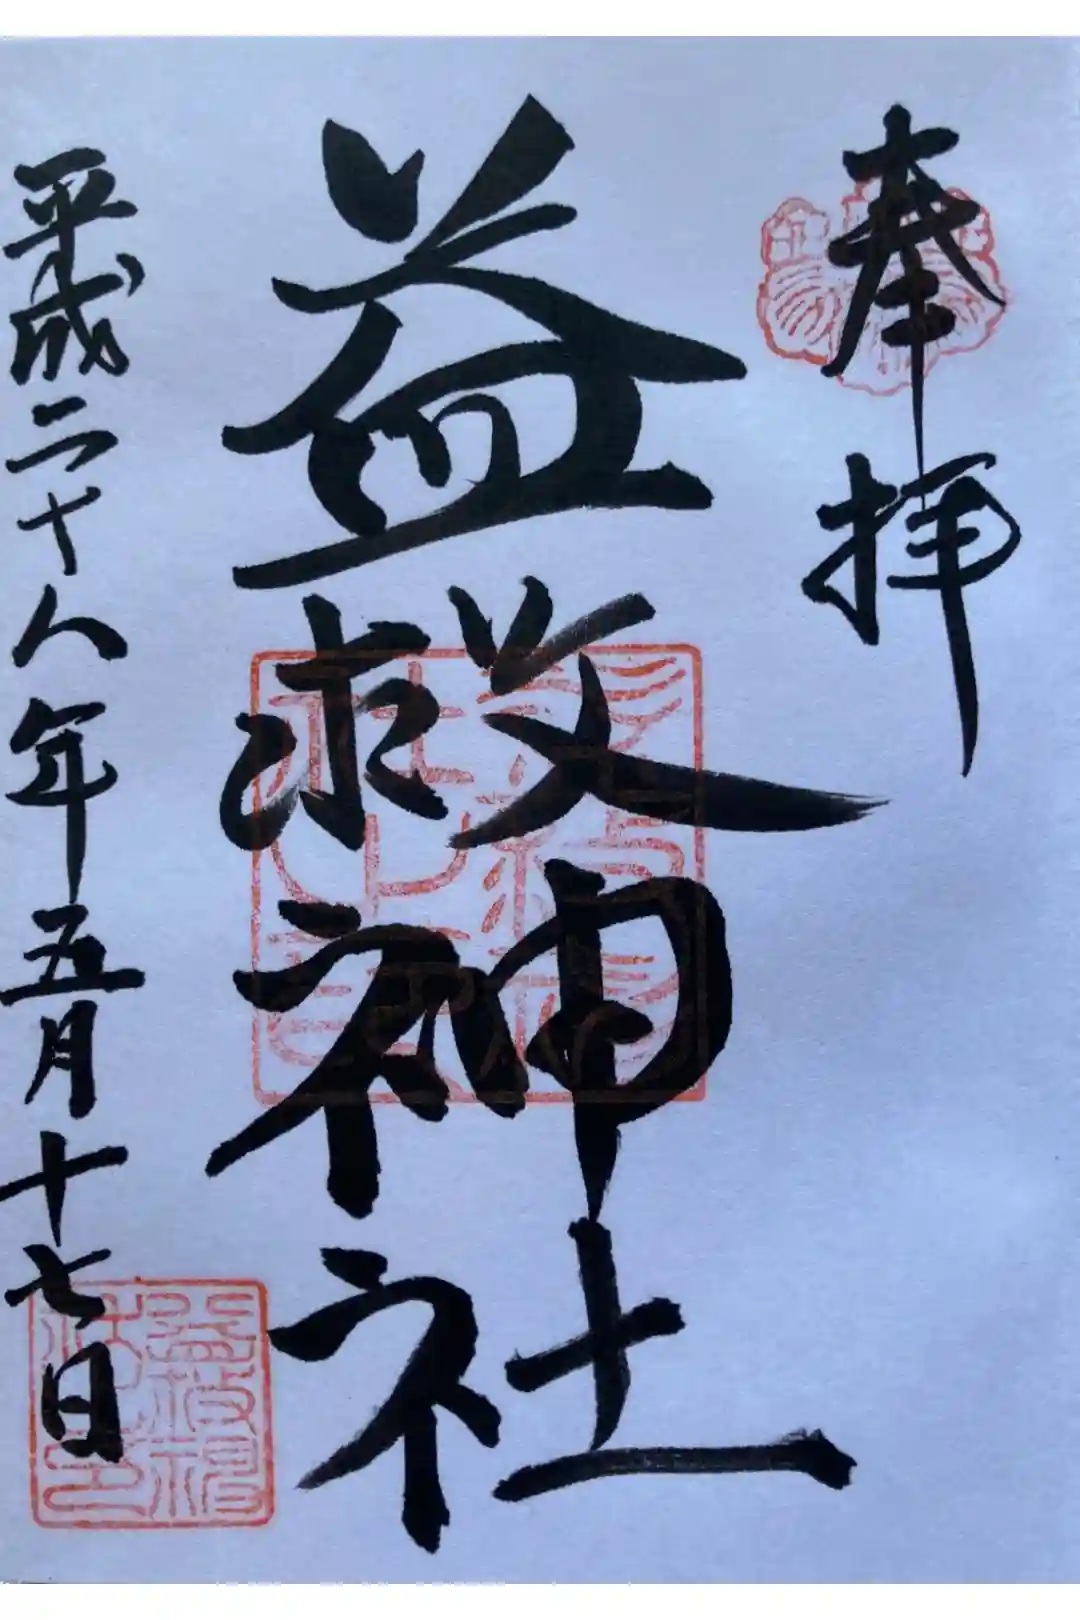 奉拝
益救神社
平成二十八年五月十七日